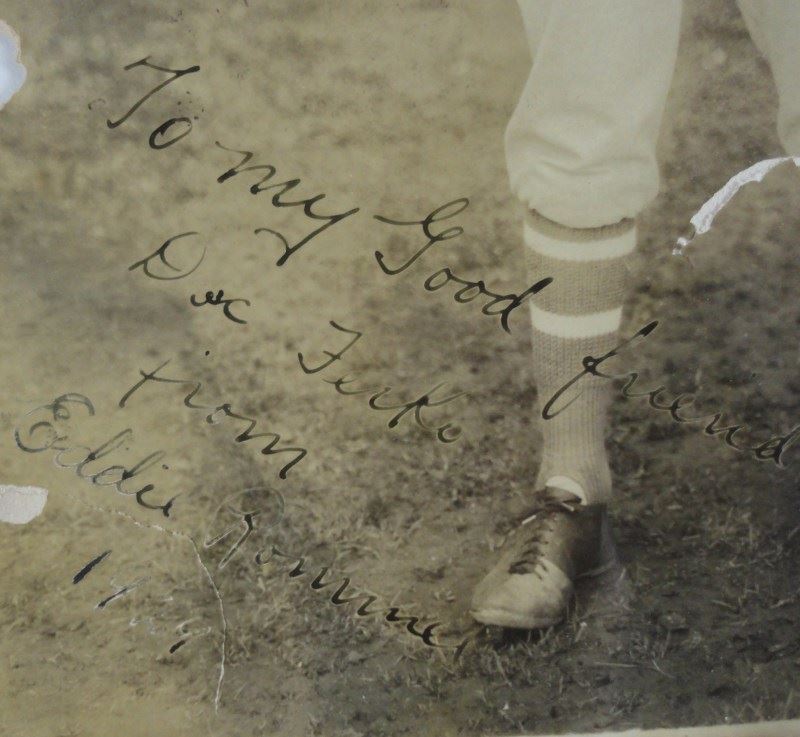 To my Good friend
Doc Ferko
from
Eddie Rommel
1929